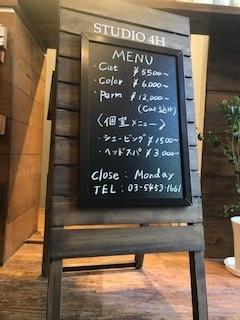 STUDIO 4H
MENU
・Cut ¥5500~
・Color ¥6,000~
・Perm ¥12,000~
(Cut込み)
〈個室メニュー〉
・シェービング ¥1500~
・ヘッドスパ ¥3,000~
Close : Monday
TEL : 03-5453-1661